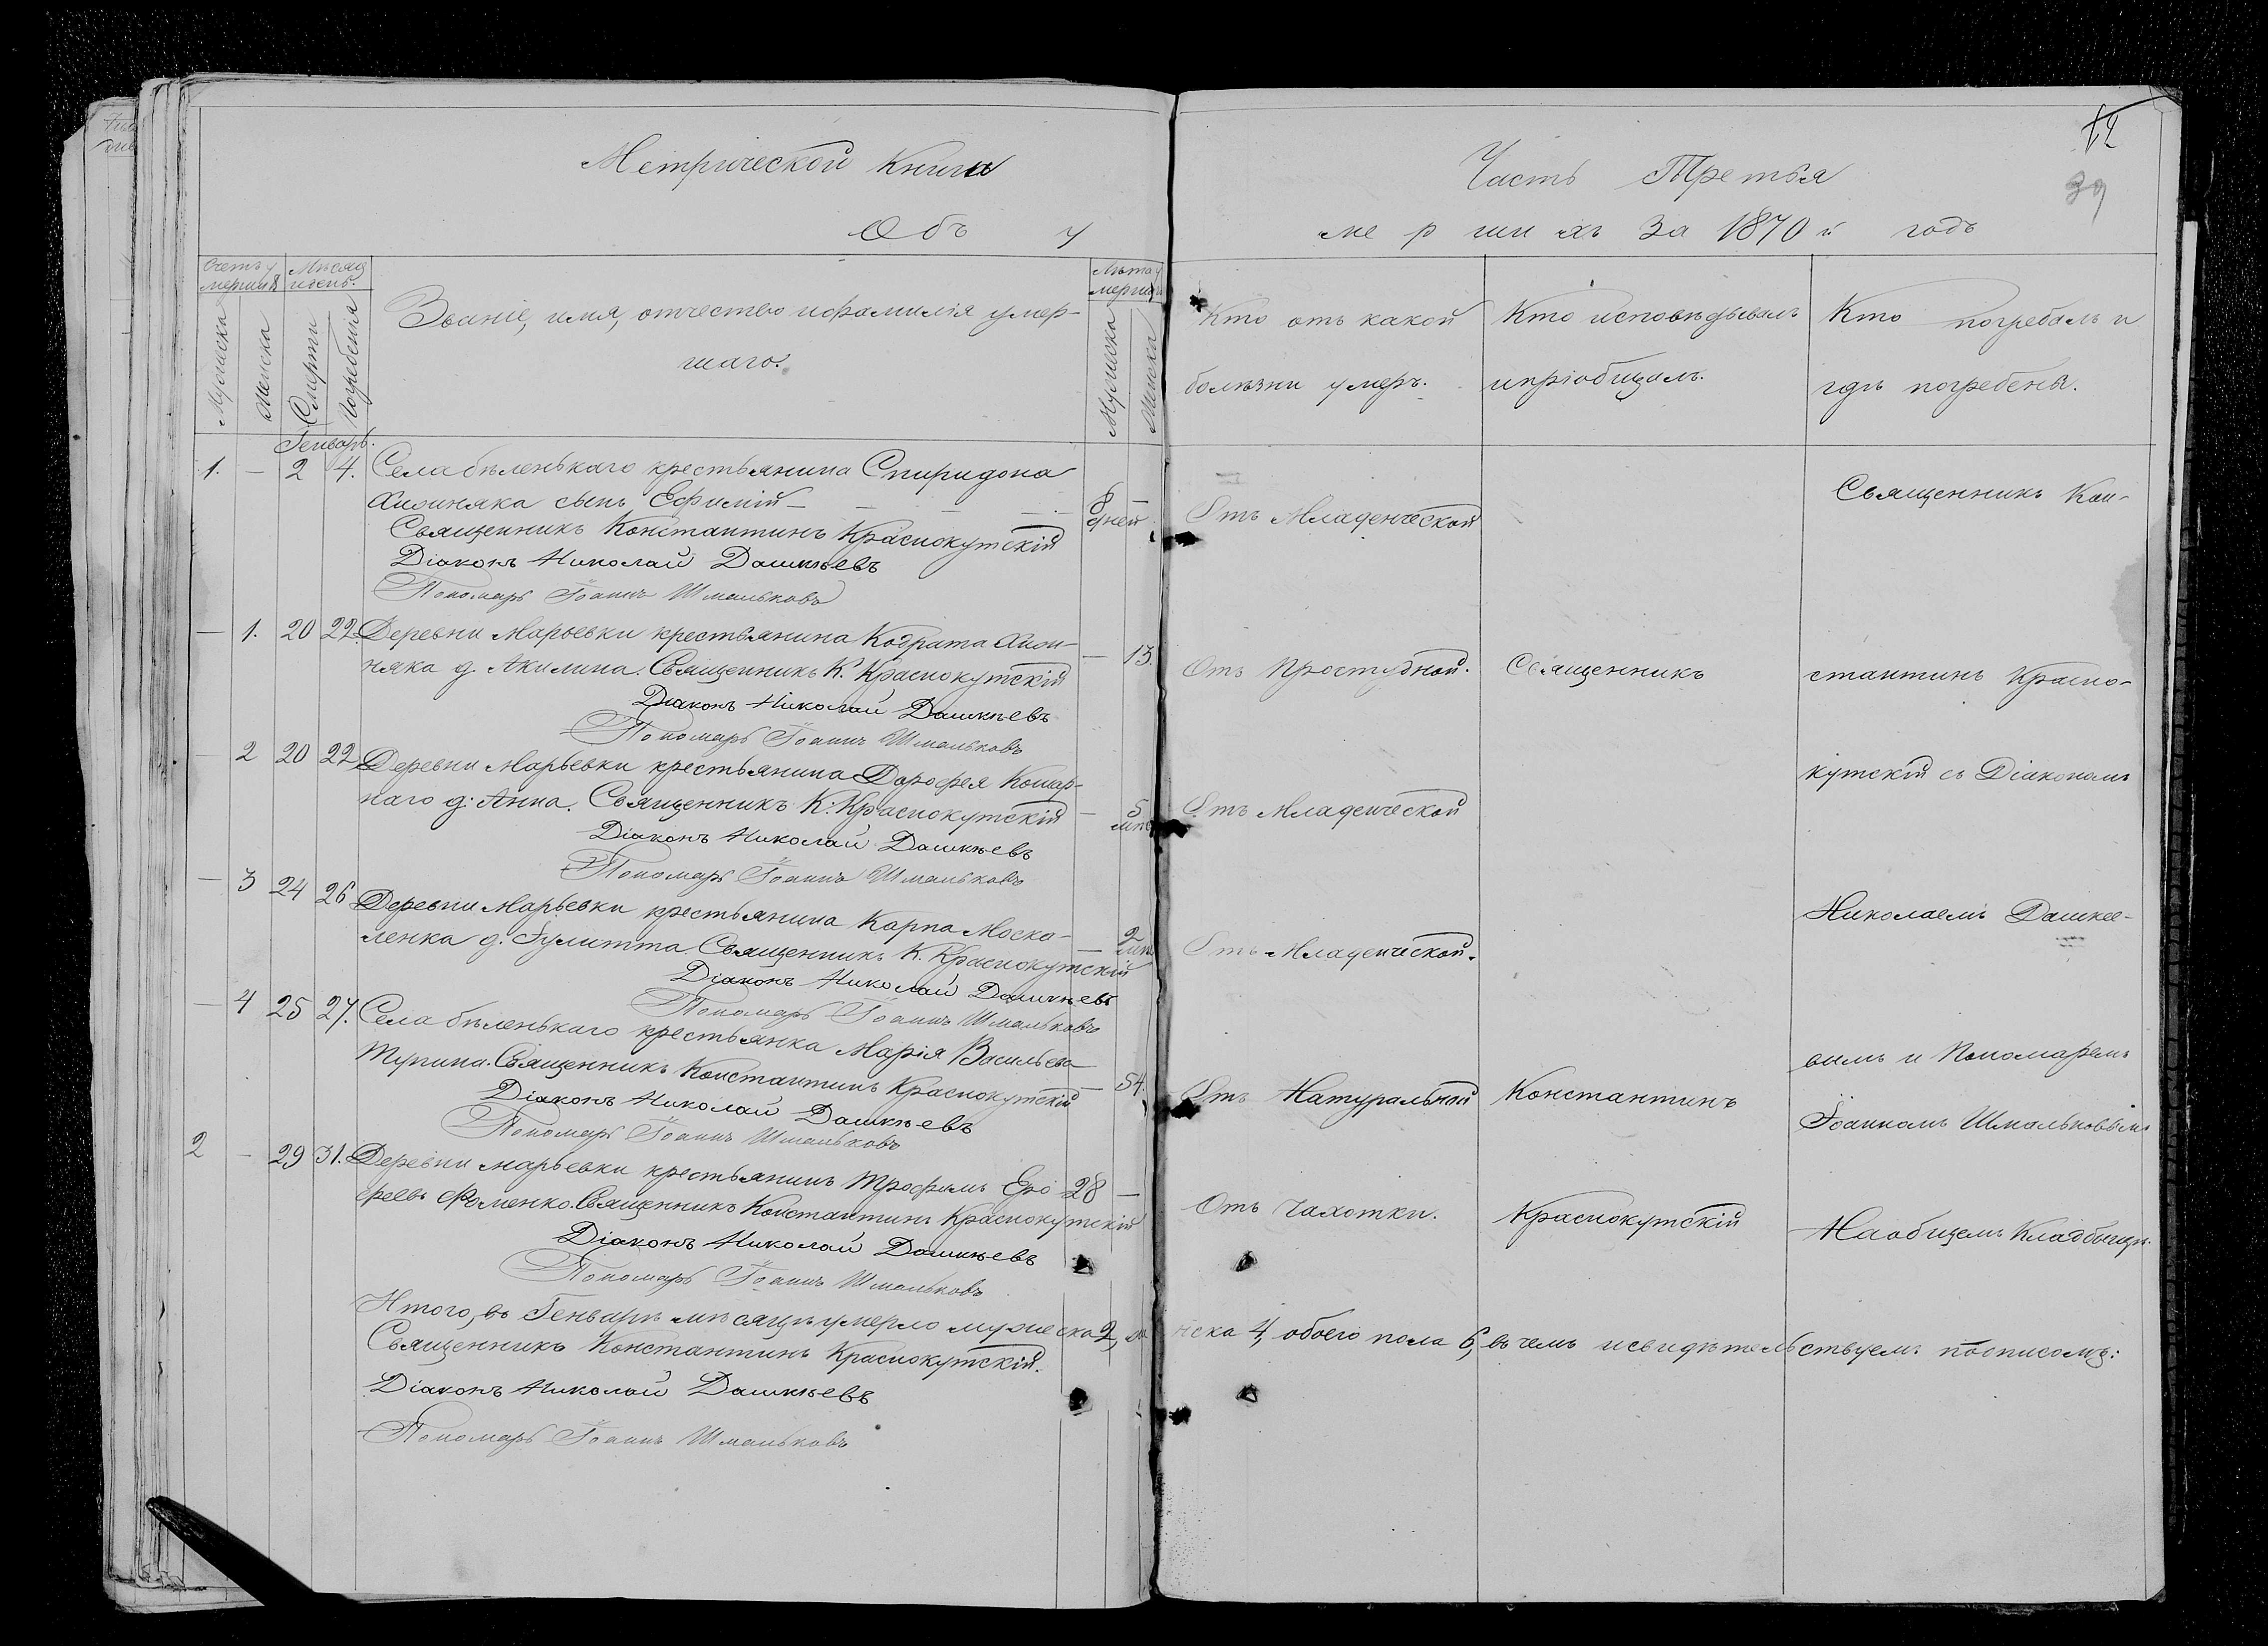 Метрической Книги
Объ у
Счетъ у
мершихъ
Мѣсяцъ
и день.
Мужеска
Женска
Смерти
Погребенія
Званіе, имя, отчество и фамилія умер-
шаго.
Лѣта у
мерш
Мужеска
Женска
Генварь.
1. — 2 4. Села бѣленькаго крестьянина Спиридона
сынъ Ефимій — 8 дней —
Священникъ Константинъ Краснокутскій
Діаконъ Николай Дашкѣевъ
Пономарь Іоаннъ Шмальковъ
— 1. 20 22. Деревни Марьевки крестьянина Кодрата
няка д. Акилина. Священникъ К. Краснокутскій — 13.
Діаконъ Николай Дашкѣевъ
Пономарь Іоаннъ Шмальковъ
— 2 20 22 Деревни Марьевки крестьянина Дорофея Комар-
наго д: Анна. Священникъ К: Краснокутскій — 5 лѣтъ
Діаконъ Николай Дашкѣевъ
Пономарь Іоаннъ Шмальковъ
— 3 24 26 Деревни Марьевки крестьянина Карпа Моска-
ленка д. Іулитта. Священникъ К. Краснокутскій — 2
Діаконъ Николай Дашкѣевъ
Пономарь Іоаннъ Шмальковъ
— 4 25 27. Села бѣленькаго крестьянка Марія Васильева
Священникъ Константинъ Краснокутскій — 54.
Діаконъ Николай Дашкѣевъ
Пономарь Іоаннъ Шмальковъ
2 — 29 31. Деревни марьевки крестьянинъ Трофимъ Еро- 28 —
феевъ Фоменко. Священникъ Константинъ Краснокутскій
Діаконъ Николай Дашкѣевъ
Пономарь Іоаннъ Шмальковъ
Итого, въ Генварѣ мѣсяцѣ умерло мужеска 2, же
Священникъ Константинъ Краснокутскій.
Діаконъ Николай Дашкѣевъ
Пономарь Іоаннъ Шмальковъ
12
39
Часть Третья
ме р ши хъ За 1870 й годъ
Кто отъ какой
болѣзни умеръ.
Кто исповѣдывалъ
и пріобщалъ.
Кто погребалъ и
гдѣ погребены.
Отъ Младенческой
Священникъ Кон-
Отъ Простудной. Священникъ
стантинъ Красно-
кутскій съ Діакономъ
Отъ Младенческой
Николаемъ Дашкее-
Отъ Младенческой.
вымъ и Пономаремъ
Отъ Натуральной Константинъ
Іоанномъ Шмальковымъ
Отъ Чахотки. Краснокутскій
На общемъ Кладбищѣ.
нска 4, обоего пола 6, въ чемъ и свидѣтельствуемъ подписомъ: